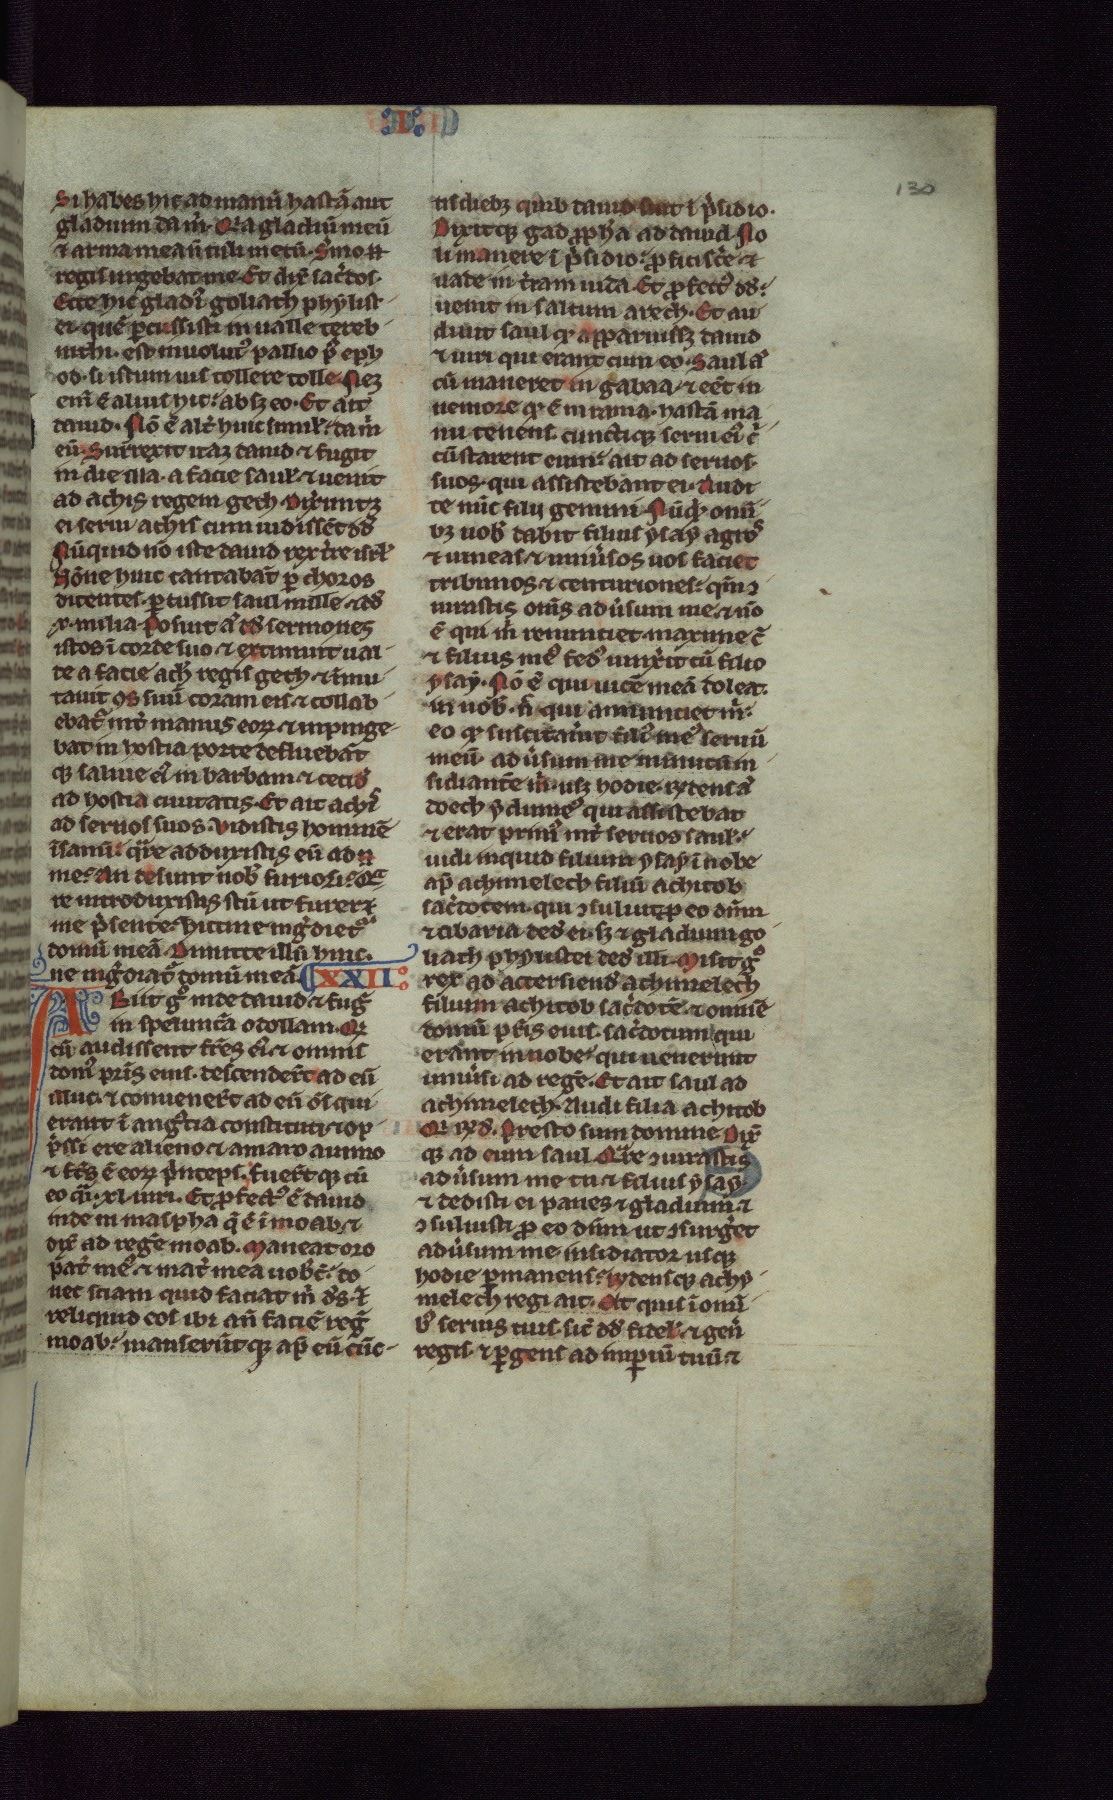 I
130
Si habes hic ad manū hastā aut
gladium da m̄. Q̄ia gladiū meū
⁊ arma mea n̄ tuli mecū. S̄mo n̄
regis urgebat me. Et dix̄ sac̄dos.
Ecce hic gladī goliath phylist-
ei quē p̄cussisti in ualle tereb-
inthi. est inuolut̄ pallio p̄ eph
od. si istum uis tollere tolle. Neq̄
eni ē aliuſ hic absq̄ eo. Et ait
dauid. Nō ē alt̄ huic similꝭ. da m̄
eū. Surrexit itaq̄ dauid ⁊ fugit
in die illa. a facie saulꝭ ⁊ uenit
ad achis regem geth. Dix̄untq̄
ei serui achis cum uidissēt dd̄
Nūquid nō iste dauid rex t̄re isrlꝭ
Nōne huic cantabāt p̄ choros
dicentes. p̄cussit saul mille ⁊ dd̄
x. milia. Posuit ā dd̄ sermones
istos ī corde suo ⁊ extimuit ual-
de a facie ach̄ regis geth. ⁊ īmu
tauit os suū coram eis ⁊ collab
ebat̄ int̄ manus eoꝝ ⁊ inpinge-
bat in hostia porte defluebāt
q̄ saliue eī in barbam ⁊ cecid̄
ad hostia ciuitatis. Et ait achī
ad seruos suos. Vidistis hominē
īsanū. q̄re adduxistis eū ad
me. An desunt nob̄ furiosi.
re introduxistis istū ut fureret̄
me p̄sente. Hiccine ingr̄diet̄
domū meā. Dimitte illū hinc.
ne ingr̄diat̄ domū meā. XXII
Abiit ḡ inde dauid ⁊ fuḡ
in speluncā odollam. Q̄
cū audissent fr̄es eī ⁊ omnis
domꝰ pr̄is eius. descender̄t ad eū
illuc. ⁊ conuener̄t ad eū ōs qui
erant ī angꝰtia constituti ⁊ op
p̄ssi ere alieno ⁊ amaro animo
⁊ fc̄s ē eoꝝ p̄nceps. fuer̄tq̄ cū
eo q̄si .xl. uiri. Et p̄fectꝰ ē dauid
inde in maspha q̄ ē ī moab. ⁊
dix̄ ad regē moab. Maneat oro
pat̄ meꝰ ⁊ mat̄ mea uobc̄. do-
nec sciam quid faciat m̄ ds̄. ⁊
reliquid eos ibi añ faciē reḡ
moab. manser̄tq̄ ap̄ eū cūc-
tis diebꝫ quib dauid fuit ī p̄sidio.
Dixitq̄ gad ꝓph̄a ad dauid. No
li manere ī p̄sidio. p̄ficiscer̄e ⁊
uade in t̄ram iuda. Et p̄fectꝰ dd̄.
uenit in saltum areth. Et au
diuit saul q̄ apparuissꝫ dauid
⁊ uiri qui erant cum eo. Saul ā
cū maneret in gabaa. ⁊ eēt in
nemore q̄ ē in rama. hastā ma
nu tenens. cunctiq̄ serui eī c̄
cūstarent eum. ait ad seruos
suos. qui assistebant ei. Audi
te nūc filii gemini. Nūq̄d onī
bꝫ uob̄ dabit filius ysay agros
⁊ uineas ⁊ uniūsos uos faciet
tribunos ⁊ centuriones. q̄m ꝯ
iurastis om̄s aduīsum me. ⁊ nō
ē qui m̄ renuntiet. maxime c̄
⁊ filius meꝰ fedꝰ iunx̄it cū filio
ysay. Nō ē qui uicē meā doleat.
in uob̄. n̄ qui annuntiet m̄.
eo q̄ suscitau̅it filī meꝰ seruū
meū. aduīsum me in
sidiantē m̄. usq̄ hodie. r̄ndens ā
doech ydumeꝰ qui assistebat
⁊ erat primꝰ int̄ seruos saulꝭ.
uidi inquid filium ysay ī nobe
ap̄ achimelech filiū achitob
sac̄dotem. qui ꝯsuluit p̄ eo dn̄m
⁊ cibaria dedꝭ ei. sꝫ ⁊ gladium go
liath phylistei dedꝭ illi. Misit ḡ
rex ad accersiendꝭ achimelech
filium achitob sac̄dotē. ⁊ omnē
domū pr̄is eius. sac̄dotum qui
erant in nobe. qui uenerunt
uniūsi ad regē. Et ait saul ad
achimelech. Audi filia achitob
Q̄ r̄nd̄. Presto sum domine. Dix̄
q̄ ad eum saul. Q̄re ꝯiurastis
aduīsum me tu ⁊ filius ysay.
⁊ dedisti ei panes ⁊ gladium. ⁊
ꝯsuluisti p̄ eo dn̄m ut ꝯsurḡet
aduīsum me. insidiator usq̄
hodie p̄manens. r̄ndensq̄ achy-
melech regi ait. Et quis ī onī
bꝰ seruis tuis. sic̄ dd̄ fidelꝭ. ⁊ gen̄
regis. ⁊ p̄gens ad imp̄iū tuū. ⁊